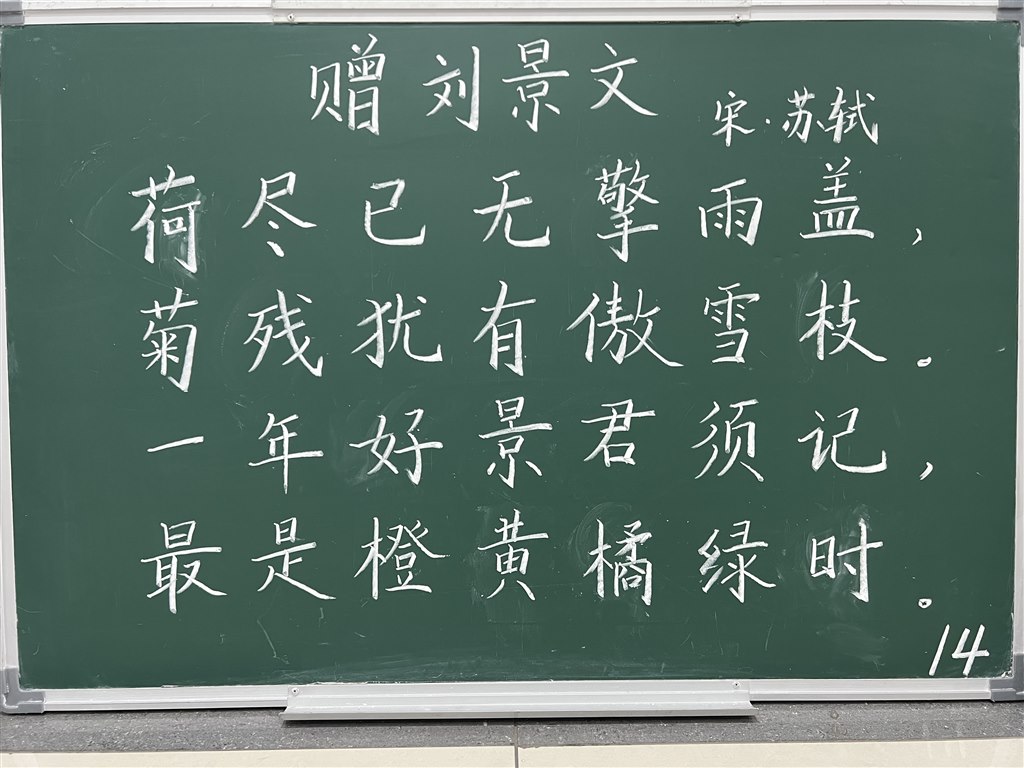 赠刘景文
宋·苏轼
荷尽已无擎雨盖，
菊残犹有傲雪枝。
一年好景君须记，
最是橙黄橘绿时。
14